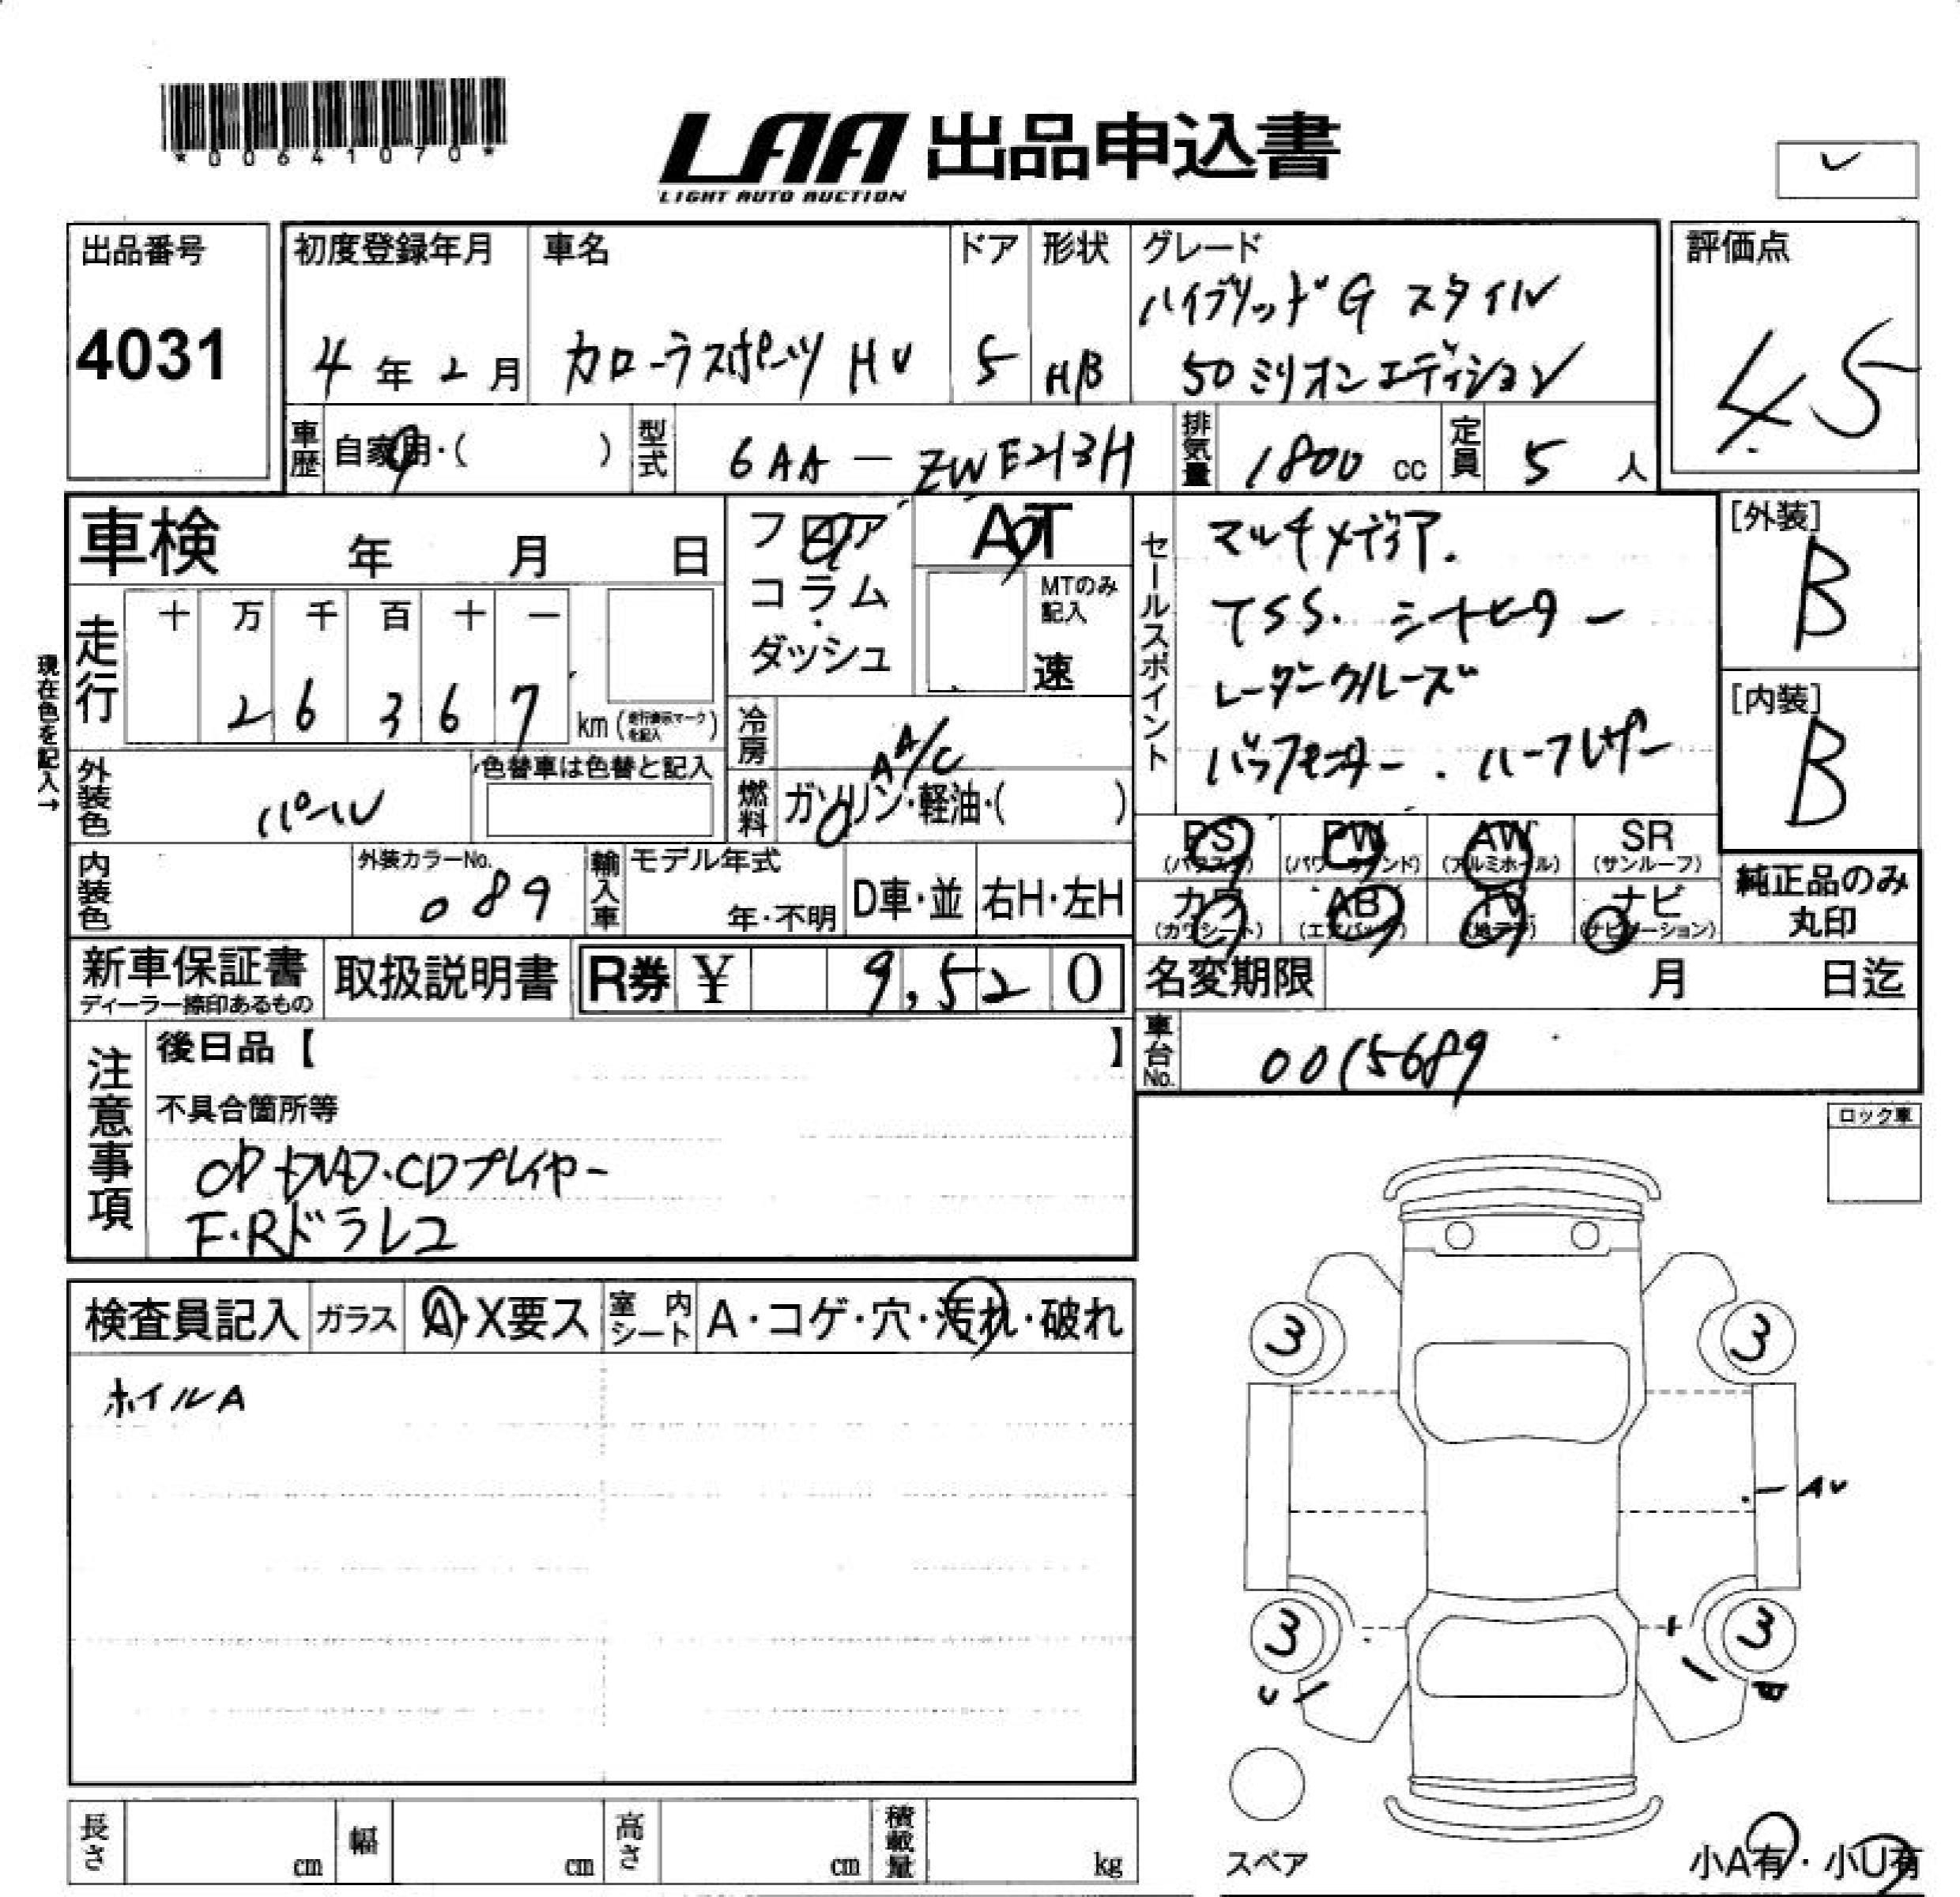 *00641070*
LAA 出品申込書
LIGHT AUTO AUCTION
出品番号
4031
初度登録年月
4年2月
車名
カローラスポーツ HV
ドア
5
形状
HB
グレード
ハイブリッドG スタイル
50ミリオンエディション
評価点
4.5
車歴
自家用・( )
型式
6AA-ZWE213H
排気量
1800cc
定員
5人
車検 年 月 日
フロア
コラム
・
ダッシュ
AT
MTのみ
記入
速
セールスポイント
マルチメディア.
TSS. シートヒーター
レーダークルーズ
バックモニター . ハーフレザー
[外装]
B
[内装]
B
現在色を記入→
走行
十 万 千 百 十 一
2 6 3 6 7 km(走行表示マークを記入)
冷房
AA/C
外装色
パール
色替車は色替と記入
燃料
ガソリン・軽油・( )
PS
(パワステ)
PW
(パワーウインド)
AW
(アルミホイル)
SR
(サンルーフ)
カワ
(カワシート)
AB
(エアバック)
TV
(地デジ)
ナビ
(ナビゲーション)
純正品のみ
丸印
内装色
外装カラーNo.
089
輸入車
モデル年式
年・不明
D車・並
右H・左H
新車保証書
ディーラー捺印あるもの
取扱説明書
R券 ¥ 9,520
名変期限 月 日迄
車台No.
0015689
注意事項
後日品【 】
不具合箇所等
CDプレイヤー
F・Rドラレコ
ロック車
検査員記入
ガラス
A・X要ス
室内シート
A・コゲ・穴・汚れ・破れ
ホイルA
3
3
AU
3
3
U
スペア
小A有・小U有
長さ cm
幅 cm
高さ cm
積載量 kg